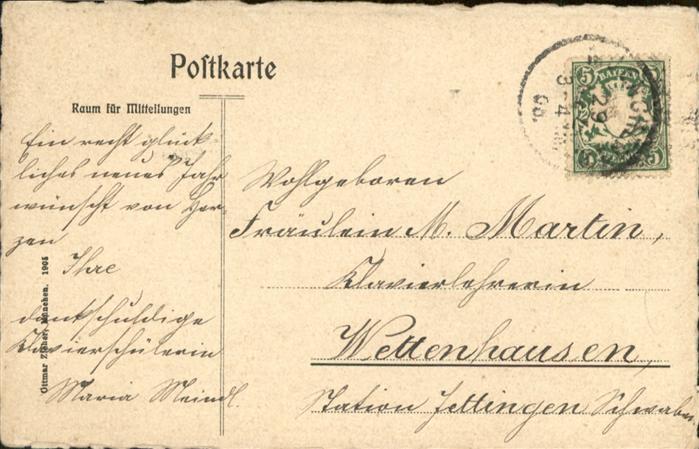 Postkarte
Raum für Mitteilungen
Ein recht glück-
liches neues Jahr
wünscht von Her-
zen
Ihre
dankschuldige
Klavierschülerin
Maria Meindl
Ottmar Zieher, München. 1905
5 BAYERN
5 5
3-4
06.
Wohlgeboren
Fräulein M. Martin,
Klavierlehrerin
Wettenhausen,
Station Jettingen Schwaben